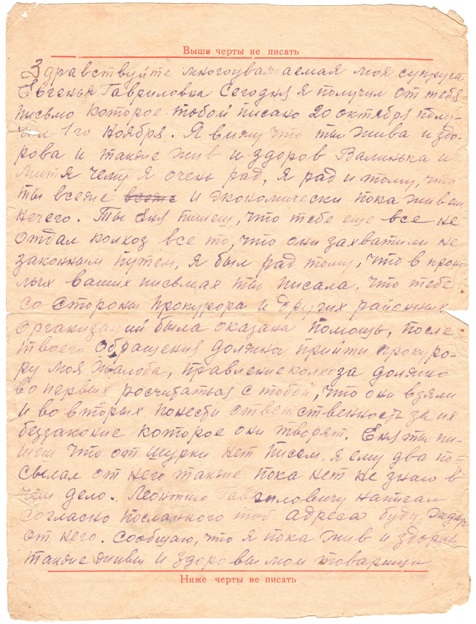 Выше черты не писать
Здравствуйте многоуважаемая моя супруга
Евгенья Гавриловна Сегодня я получил от тебя
письмо которое тобой писано 20 октября полу-
чил 1го Ноября. Я вижу что ты жива и здо-
рова и также жив и здоров Валинька и
Митя чему я очень рад, я рад и тому, что
ты всеже и экономически пока живеш
нечего. Ты Еня пишеш, что тебе еще все не
отдал колхоз все то, что они захватили не
законным путем, я был рад тому, что в прош-
лых ваших письмах ты писала, что тебе
со стороны прокурора и других районных
организаций была оказана помощь, после
твоего обращения должна прийти проку ро-
ру моя жалоба, правление колхоза должно
во первых росчитатьа с тобой, что они взяли
и во вторых понести ответственность за их
беззаконие которое они творят. Еня ты пи-
шеш что от Шурки нет писем, я ему два по-
сылал от него также пока нет не знаю в
чем дело. Леонтию Гавриловичу написал
согласно посланного тоб адреса буду ждать
от него. Сообщаю, что я пока жив и здоров
также живы и здоровы мои товарищи
Ниже черты не писать